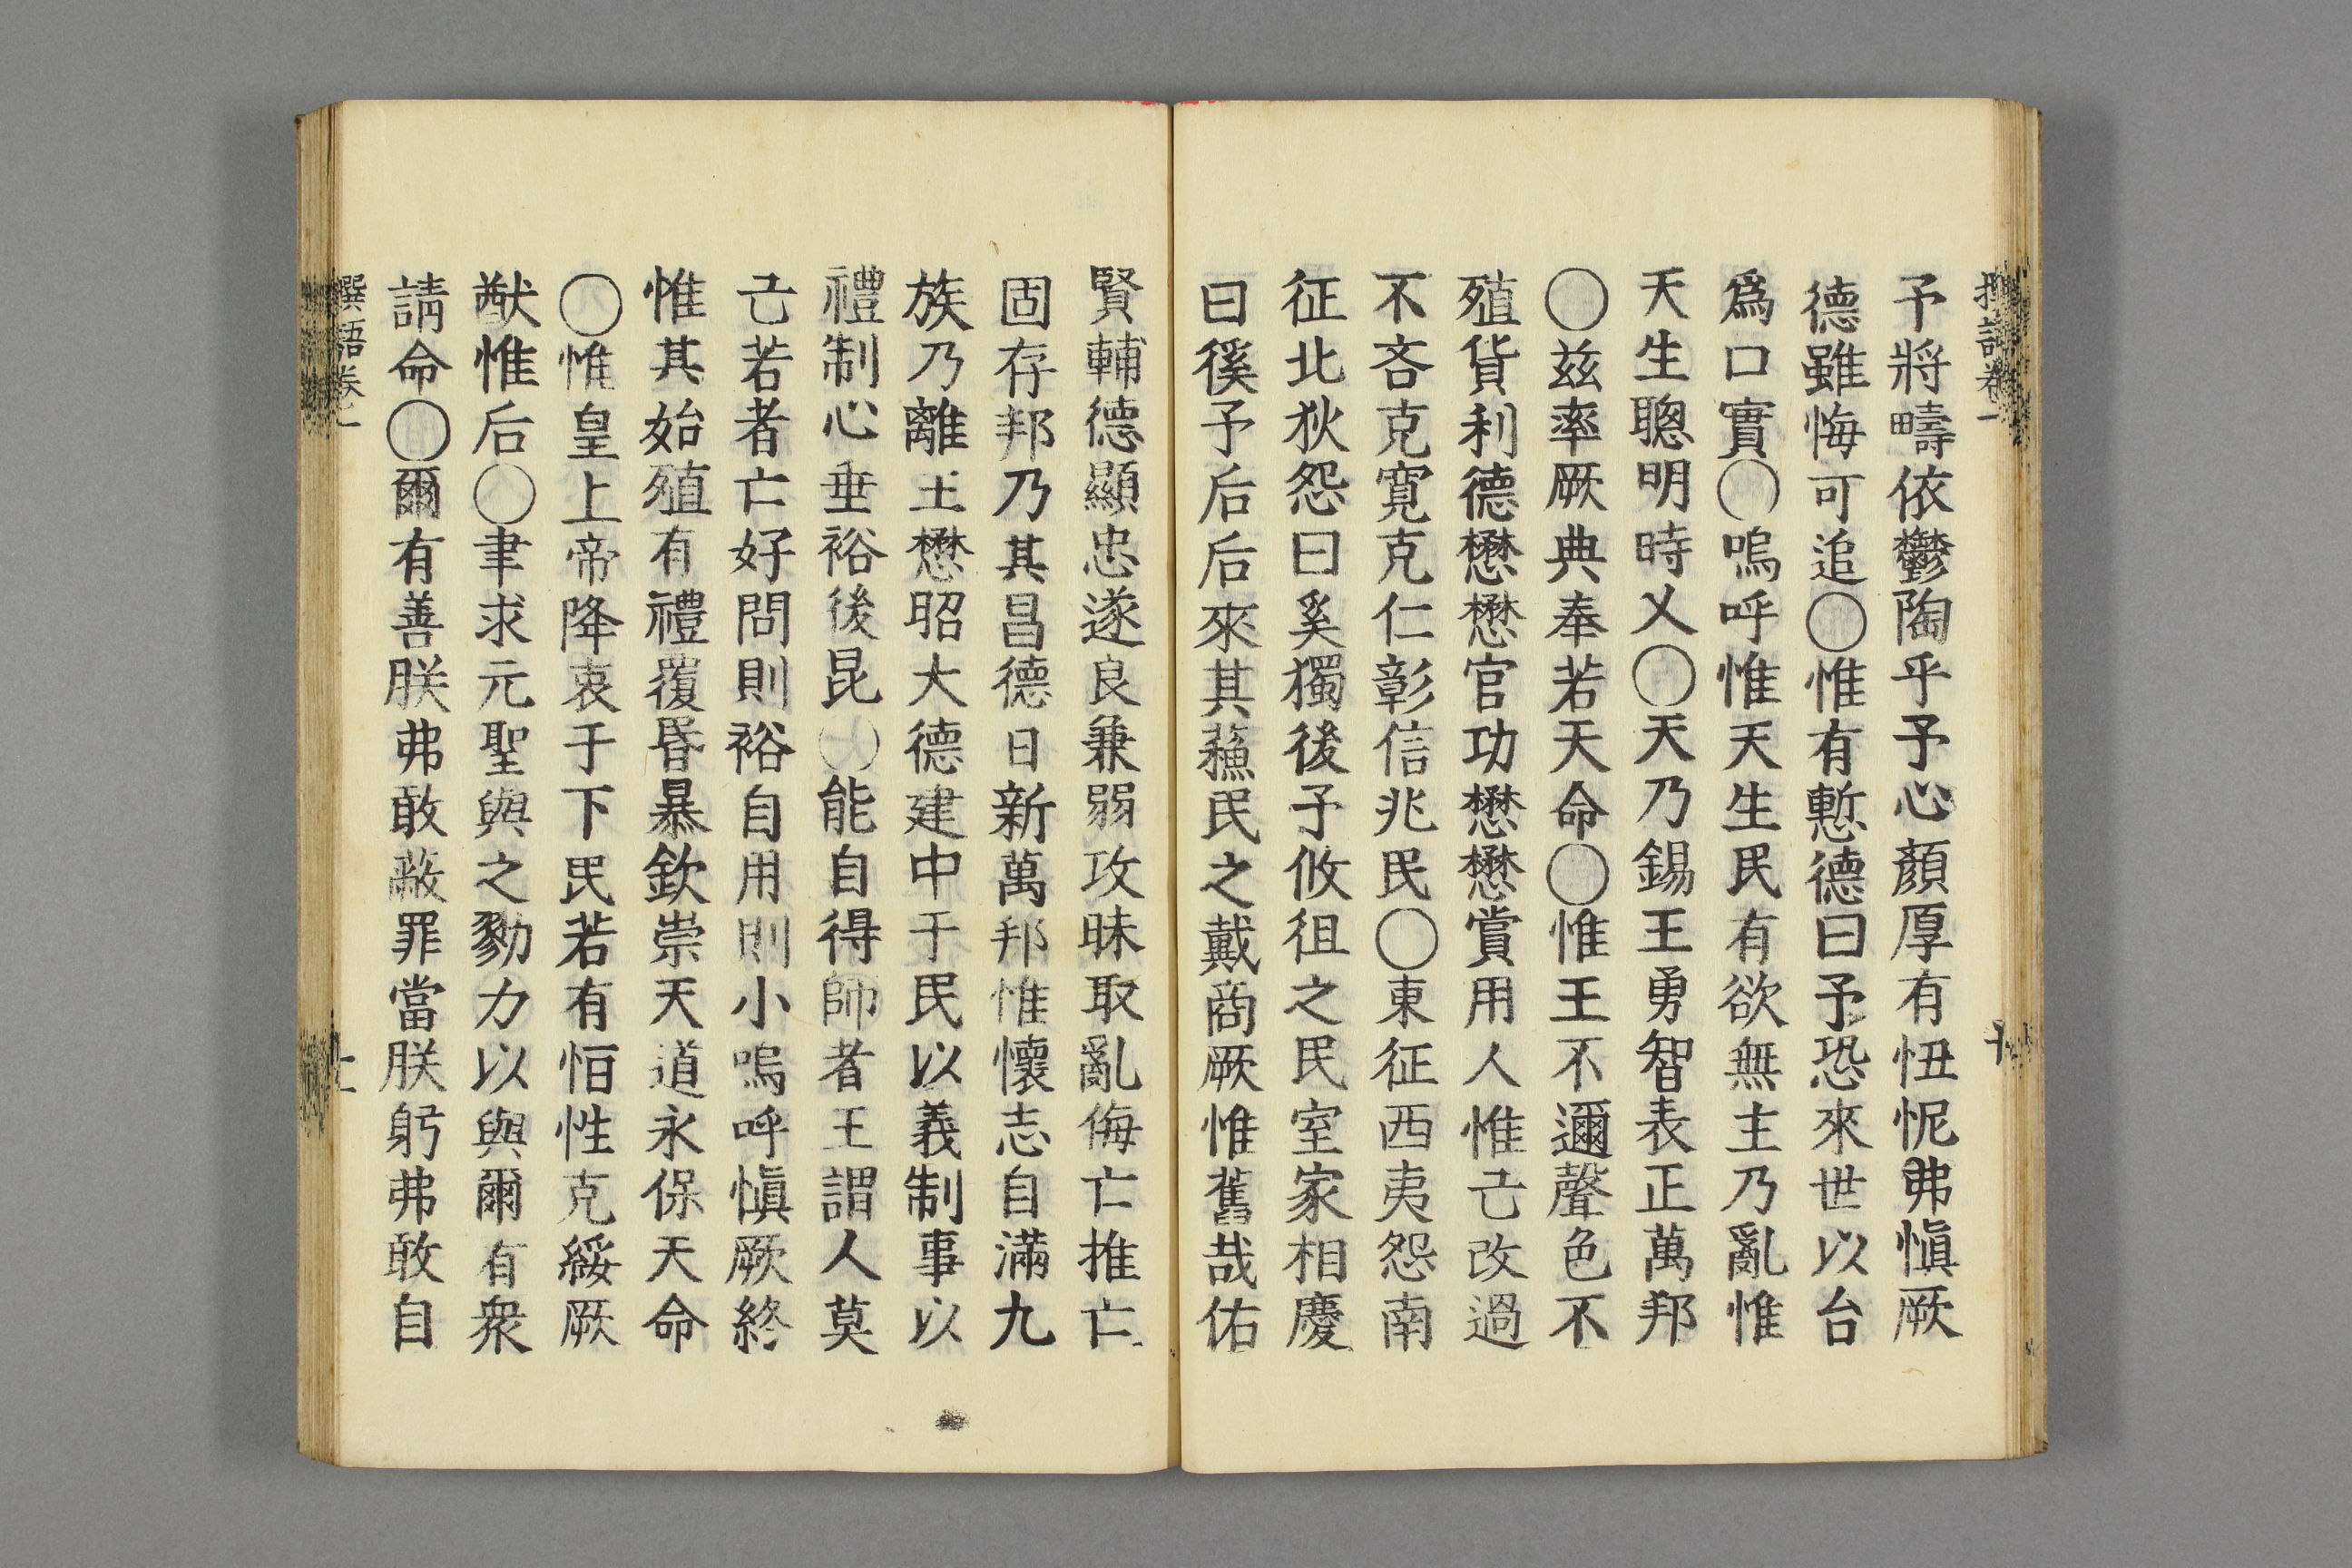 予將疇依鬱陶乎予心顏厚有忸怩弗愼厥
德雖悔可追○惟有慙德曰予恐來世以台
爲口實○嗚呼惟天生民有欲無主乃亂惟
天生聰明時乂○天乃錫王勇智表正萬邦
○玆率厥典奉若天命○惟王不邇聲色不
殖貨利德懋懋官功懋懋賞用人惟己改過
不吝克寬克仁彰信兆民○東征西夷怨南
征北狄怨曰奚獨後予攸徂之民室家相慶
曰徯予后后來其蘓民之戴商厥惟舊哉佑
賢輔德顯忠遂良兼弱攻昧取亂侮亡推亡
固存邦乃其昌德日新萬邦惟懷志自滿九
族乃離王懋昭大德建中于民以義制事以
禮制心垂裕後昆○能自得師者王謂人莫
己若者亡好問則裕自用則小嗚呼愼厥終
惟其始殖有禮覆昬暴欽崇天道永保天命
○惟皇上帝降衷于下民若有恒性克綏厥
猷惟后○聿求元聖與之勠力以與爾有衆
請命○爾有善朕弗敢蔽罪當朕躬弗敢自
撰語卷一